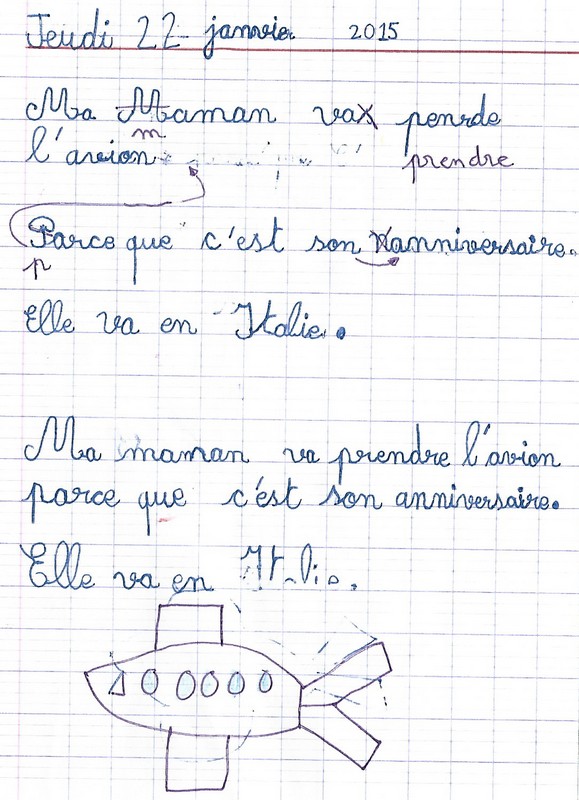 Jeudi 22 janvier 2015
Ma Maman vax penrde
m
l'avion prendre
Parce que c'est son nanniversaire.
p
Elle va en Italie.
Ma maman va prendre l'avion
parce que c'est son anniversaire.
Elle va en Italie.